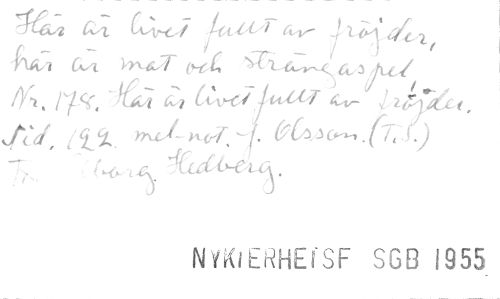 Här är livet fullt av fröjder,
här är mat och strängaspel,
Nr. 178. Här är livet fullt av fröjder.
Sid. 192. mel-not. J. Olsson. (T.S.)
Hedberg.
NYKTERHETSF SGB 1955